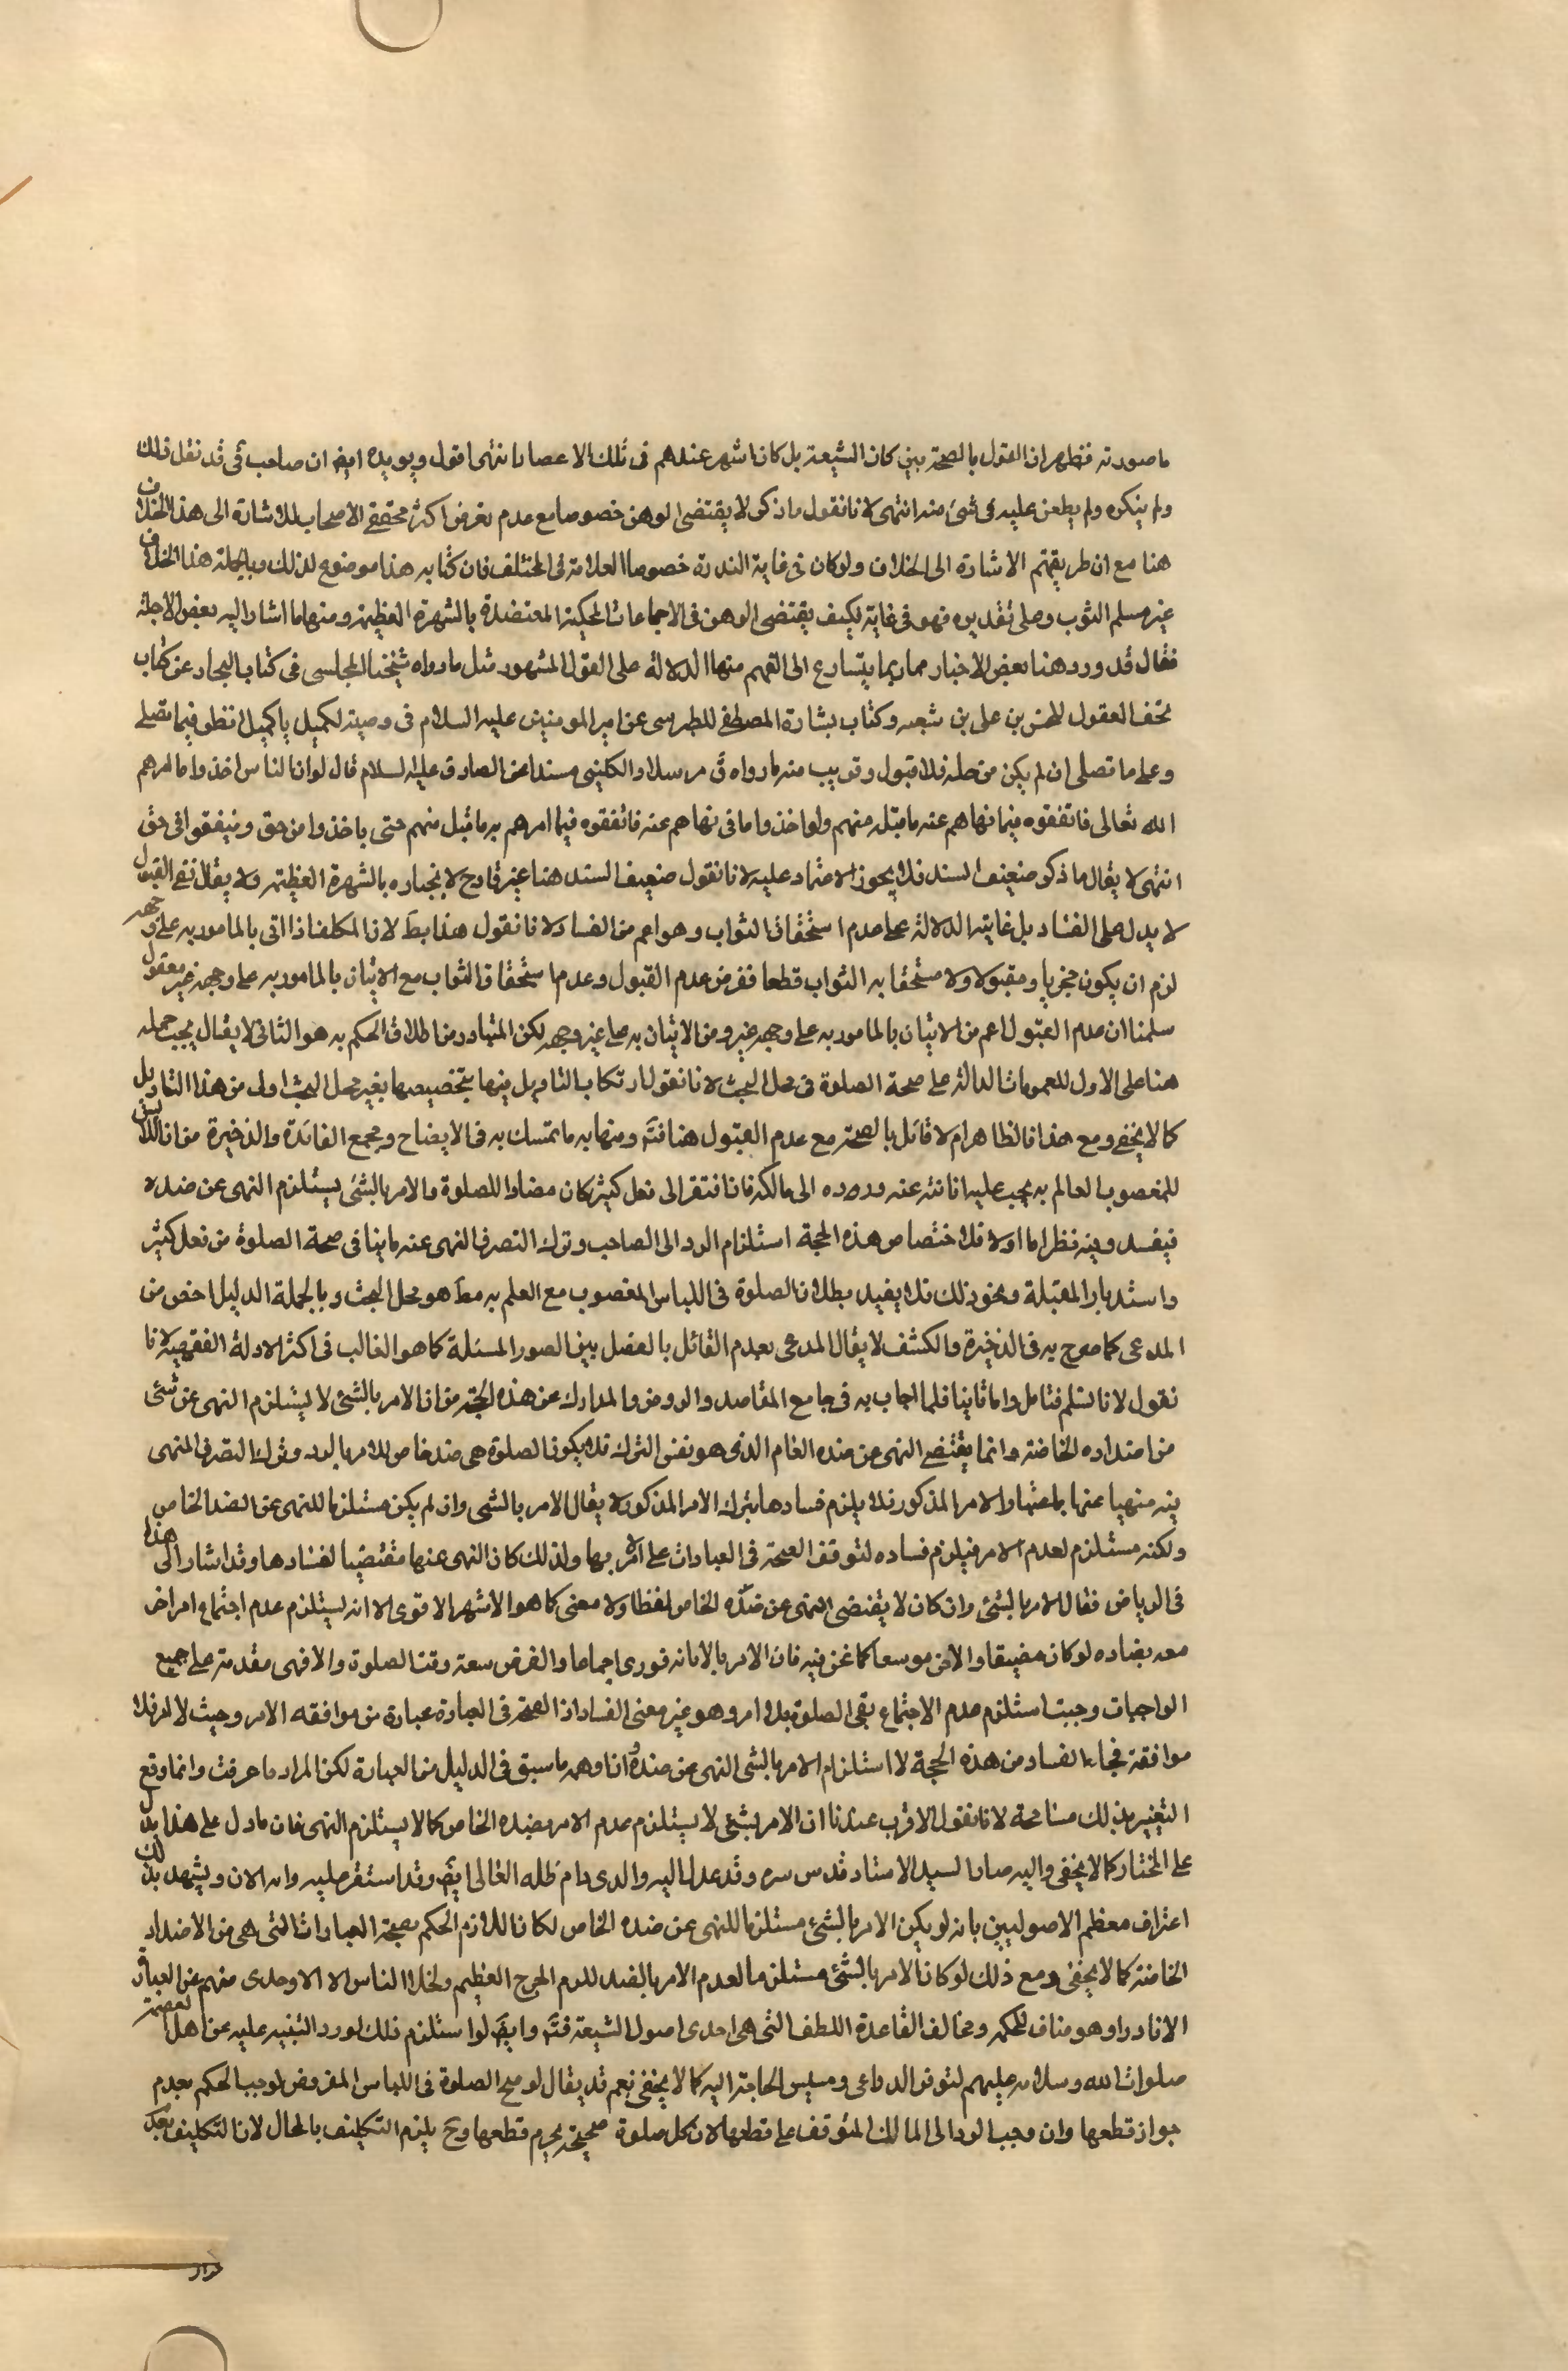 ما صورته فظهر ان القول بالصحة بين كان الشيعة بل كان اشهر عندهم فى تلك الاعصار انتهى اقول ويويده ايضا ان صاحب فى قد نقل ذلك
ولم ينكره ولم يطعن عليه فى شئ منه انتهى لانا نقول ما ذكر لا يقتضى الوهن خصوصا مع عدم تعرض اكثر محققى الاصحاب للاشارة الى هذا الخلاف
هنا مع ان طريقتهم الاشارة الى الخلاف ولو كان فى غاية الندرة خصوصا العلامة فى المختلف فان كتابه هذا موضوع لذلك وبالجملة هذا الخلاف
غير مسلم الثوب وعلى تقديره فهو فى غاية فكيف يقتضى الوهن فى الاجماعات المحكية المعتضدة بالشهرة العظيمة ومنها ما اشار اليه بعض الاجلة
فقال قد ورد هنا بعض الاخبار مما ربما يتسارع الى الفهم منها الدلالة على القول المشهور مثل ما رواه شيخنا المجلسى فى كتاب البحار عن كتاب
تحف العقول للحسن بن على بن شعبه وكتاب بشارة المصطفى للطبرسى عن امير المومنين عليه السلام فى وصيته لكميل يا كميل انظر فيما تصلى
وعلى ما تصلى ان لم يكن من حله فلا قبول وقريب منه ما رواه ق مرسلا والكلينى مسندا عن الصادق عليه السلام قال لو ان الناس اخذوا ما امرهم
الله تعالى فانفقوه فيما نهاهم عنه ما قبله منهم ولو اخذوا ما فى نهاهم عنه فانفقوه فيما امرهم به ما قبل منهم حتى ياخذوا من حق وينفقوا فى حق
انتهى لا يقال ما ذكر ضعيف السند فلا يجوز الاعتماد عليه لانا نقول ضعيف السند هنا غير قادح لانجباره بالشهرة العظيمة ولا يقال نفى القبول
لا يدل على الفساد بل غايته الدلالة على عدم استحقاق الثواب وهو اعم من الفساد لانا نقول هذا بط لان المكلف اذا اتى بالمامور به على وجهه
لزم ان يكون مجزيا ومقبولا ولا مستحقا به الثواب قطعا ففرض عدم القبول وعدم استحقاق الثواب مع الاتيان بالمامور به على وجهه غير معقول
سلمنا ان عدم القبول اعم من الاتيان بالمامور به على وجهه غير ومن الاتيان به على غير وجهه لكن المتبادر من اطلاق الحكم به هو الثانى لا يقال يجب حمله
هنا على الاول للعمومات الدالة على صحة الصلوة فى محل البحث لانا نقول ارتكاب التاويل فيها بتخصيصها بغير محل البحث اولى من هذا التاويل
كما لا يخفى ومع هذا فالظاهر ام لا قائل بالصحة مع عدم القبول هنا فتَه ومنها به ما تمسك به فى الايضاح ومجمع الفائدة والذخيرة من ان اللابس
للمغصوب العالم به يجب عليه ابانته عنه ورده الى مالكه فاذا افتقر الى فعل كثير كان مضادا للصلوة والامر بالشئ يستلزم النهى عن ضده
فيفسد وفيه نظر اما اولا فلاختصاص هذه الحجة استلزام الرد الى الصاحب وترك التصرف المنهى عنه ما ينافى صحة الصلوة من فعل كثير
واستدبار المقبلة ونحو ذلك فلا يفيد بطلان الصلوة فى اللباس المغصوب مع العلم به مط هو محل البحث وبالجملة الدليل اخص من
المدعى كما صرح به فى الذخيرة والكشف لا يقال المدعى بعدم القائل بالفصل بين الصور المسئلة كما هو الغالب فى اكثر الادلة الفقهية لانا
نقول لا نسلم فتامل واما ثانيا فلما اجاب به فى جامع المقاصد والروض والمدارك عن هذه الحجة من ان الامر بالشئ لا يستلزم النهى عن شئ
من اضداده الخاصة وانما يقتضى النهى عن ضده العام الذى هو نفس الترك فلا يكون الصلوة هى ضد خاص للامر بالرد وترك التصرف المنهى
فيه منهيا عنها باعتبار الامر المذكور فلا يلزم فسادها بترك الامر المذكور لا يقال الامر بالشى وان لم يكن مستلزما للنهى عن الضد الخاص
ولكنه مستلزم لعدم الامر فيلزم فساده لتوقف الصحة فى العبادات على الامر بها ولذلك كان النهى عنها مقتضيا لفسادها وقد اشار الى هذا
فى الرياض فقال الامر بالشئ وان كان لا يقتضى النهى عن ضدّه الخاص لفظا ولا معنى كما هو الاشهر الاقوى الا انه يستلزم عدم اجتماع امر اخر
معه يضاده لو كان مضيقا والاخر موسعا كما نحن فيه فان الامر بالابانه فورى اجماعا والفرض سعة وقت الصلوة والا فهى مقدمة على جميع
الواجبات وجبت استلزم عدم الاجتماع بقى الصلوة بلا امر وهو غير معنى الفساد اذ الصحة فى العبادة عبارة عن موافقه الامر وحيث لا امر فلا
موافقة فجاء الفساد من هذه الحجة لا استلزام الامر بالشى النهى عن ضده وان اوهمه ما سبق فى الدليل من العبارة لكن المراد ما عرفت وانما وقع
التغيير بذلك مسامحة لانا نقول الاقرب عندنا ان الامر بشئ لا يستلزم عدم الامر بضده الخاص كما لا يستلزم النهى فان ما دل على هذا يدل
على المختار كما لا يخفى واليه صار السيد الاستاد قدس سره وقد عدل اليه والدى دام ظله العالى ايض وقد استقر عليه رايه الان ويشهد بذلك
اعتراف معظم الاصوليين بانه لو يكن الامر بالشئ مستلزما للنهى عن ضده الخاص لكان اللازم الحكم بصحة العبادات التى هى من الاضداد
الخاصة كما لا يخفى ومع ذلك لو كان الامر بالشئ مستلزما لعدم الامر بالضد للزم الحرج العظيم ولخلا الناس الا الاوحدى منهم عن العبادة
الا نادرا وهو مناف للحكمة ومخالف القاعدة اللطف التى هى احدى اصول الشيعة فتَه وايضَ لو استلزم ذلك لورد التنبيه عليه عن اهل العصمة
صلوات الله وسلامه عليهم لتوفر الدواعى ومسيس الحاجة اليه كما لا يخفى نعم قد يقال لو صح الصلوة فى اللباس المفروض لوجب الحكم بعدم
جواز قطعها وان وجب الرد الى المالك المتوقف على قطعها لان كل صلوة صحيحة يحرم قطعها وح يلزم التكليف بالمحال لان التكليف بعدم
جواز